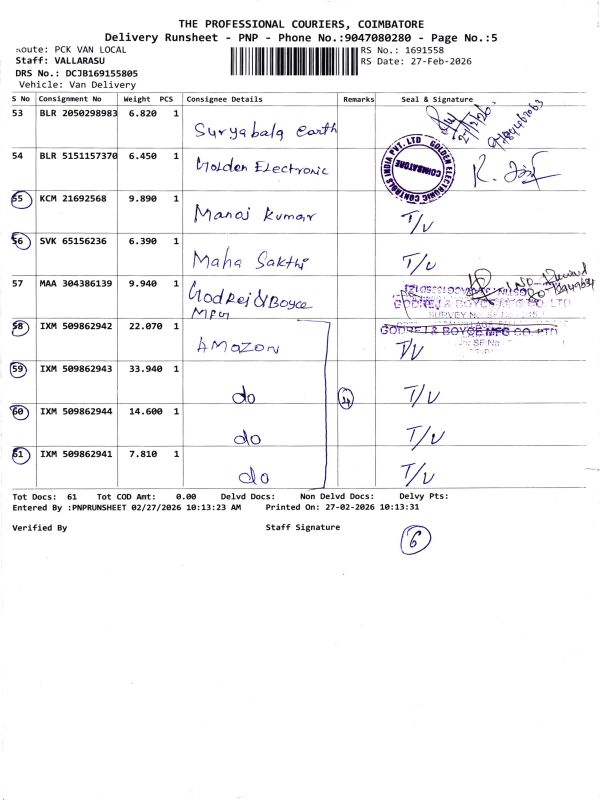 THE PROFESSIONAL COURIERS, COIMBATORE
Delivery Runsheet - PNP - Phone No.:9047080280 - Page No.:5
Route: PCK VAN LOCAL
RS No.: 1691558
Staff: VALLARASU
RS Date: 27-Feb-2026
DRS No.: DCJB169155805
Vehicle: Van Delivery
S No Consignment No Weight PCS Consignee Details Remarks Seal & Signature
53 BLR 2050298983 6.820 1 Suryabala earth
54 BLR 5151157370 6.450 1 Golden Electronic
GOLDEN ELECTRONIC CONTROLS INDIA PVT. LTD
COIMBATORE
55 KCM 21692568 9.890 1 Manoj Kumar T/V
56 SVK 65156236 6.390 1 Maha Sakthi T/V
57 MAA 304386139 9.940 1 Godrej & Boyce
MFG
GODREJ & BOYCE MFG CO LTD
58 IXM 509862942 22.070 1 AMAZON T/V
GODREJ & BOYCE MFG CO LTD
59 IXM 509862943 33.940 1 do 4 T/V
60 IXM 509862944 14.600 1 do T/V
61 IXM 509862941 7.810 1 do T/V
Tot Docs: 61 Tot COD Amt: 0.00 Delvd Docs: Non Delvd Docs: Delvy Pts:
Entered By :PNPRUNSHEET 02/27/2026 10:13:23 AM Printed On: 27-02-2026 10:13:31
Verified By Staff Signature
6